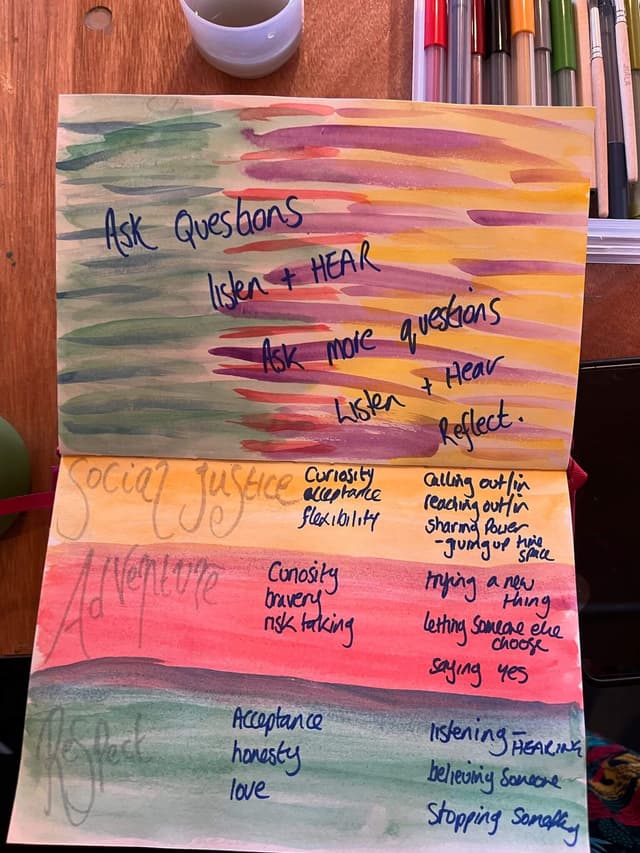 Ask Questions
listen + HEAR
Ask more questions
Listen + Hear
Reflect.
Social Justice
Curiosity
acceptance
flexibility
Calling out/in
reaching out/in
sharing Power
- giving up time
space
Adventure
Curiosity
bravery
risk taking
trying a new
thing
letting someone else
choose
saying yes
Respect
Acceptance
honesty
love
listening - HEARING
believing someone
stopping